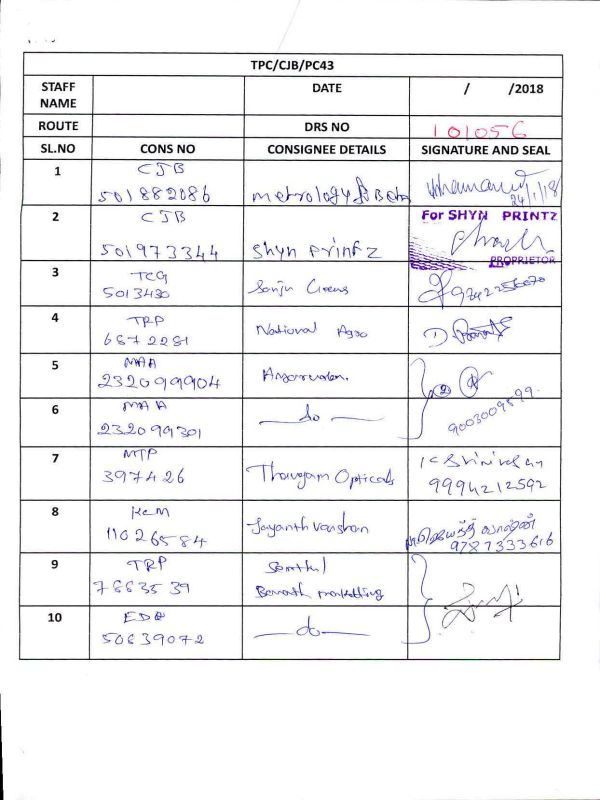 TPC/CJB/PC43
STAFF NAME DATE / /2018
ROUTE DRS NO 101056
SL.NO CONS NO CONSIGNEE DETAILS SIGNATURE AND SEAL
1 CJB
501882086 metrology 24/1/18
2 CJB For SHYN PRINTZ
501973344 Shyn Printz
PROPRIETOR
3 TCG
5013430 Sanju
4 TRP
6872281 National Agro
5 MAA
232099904
6 MAA
232099301 do 9003009599
7 MTP
397426 Thangam Opticals K Srinivasan
9994212592
8 KCM
11026584 Jayanth vardhan
9787333616
9 TRP
7883539 Senthil
Barath marketting
10
50639072 do